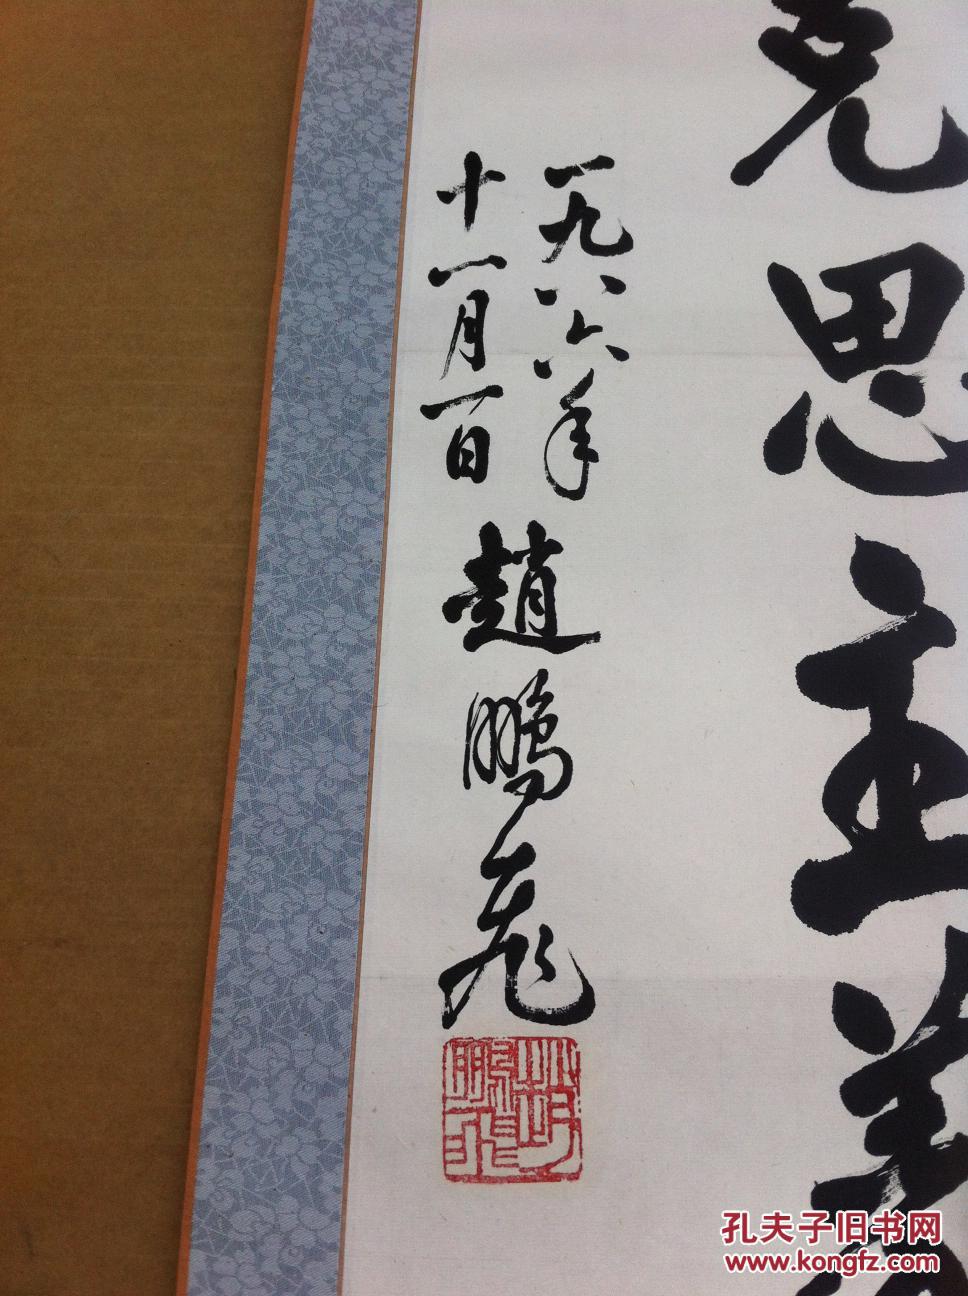 克思主义
一九八六年
十一月一日
趙鵬飛
孔夫子旧书网
www.kongfz.com